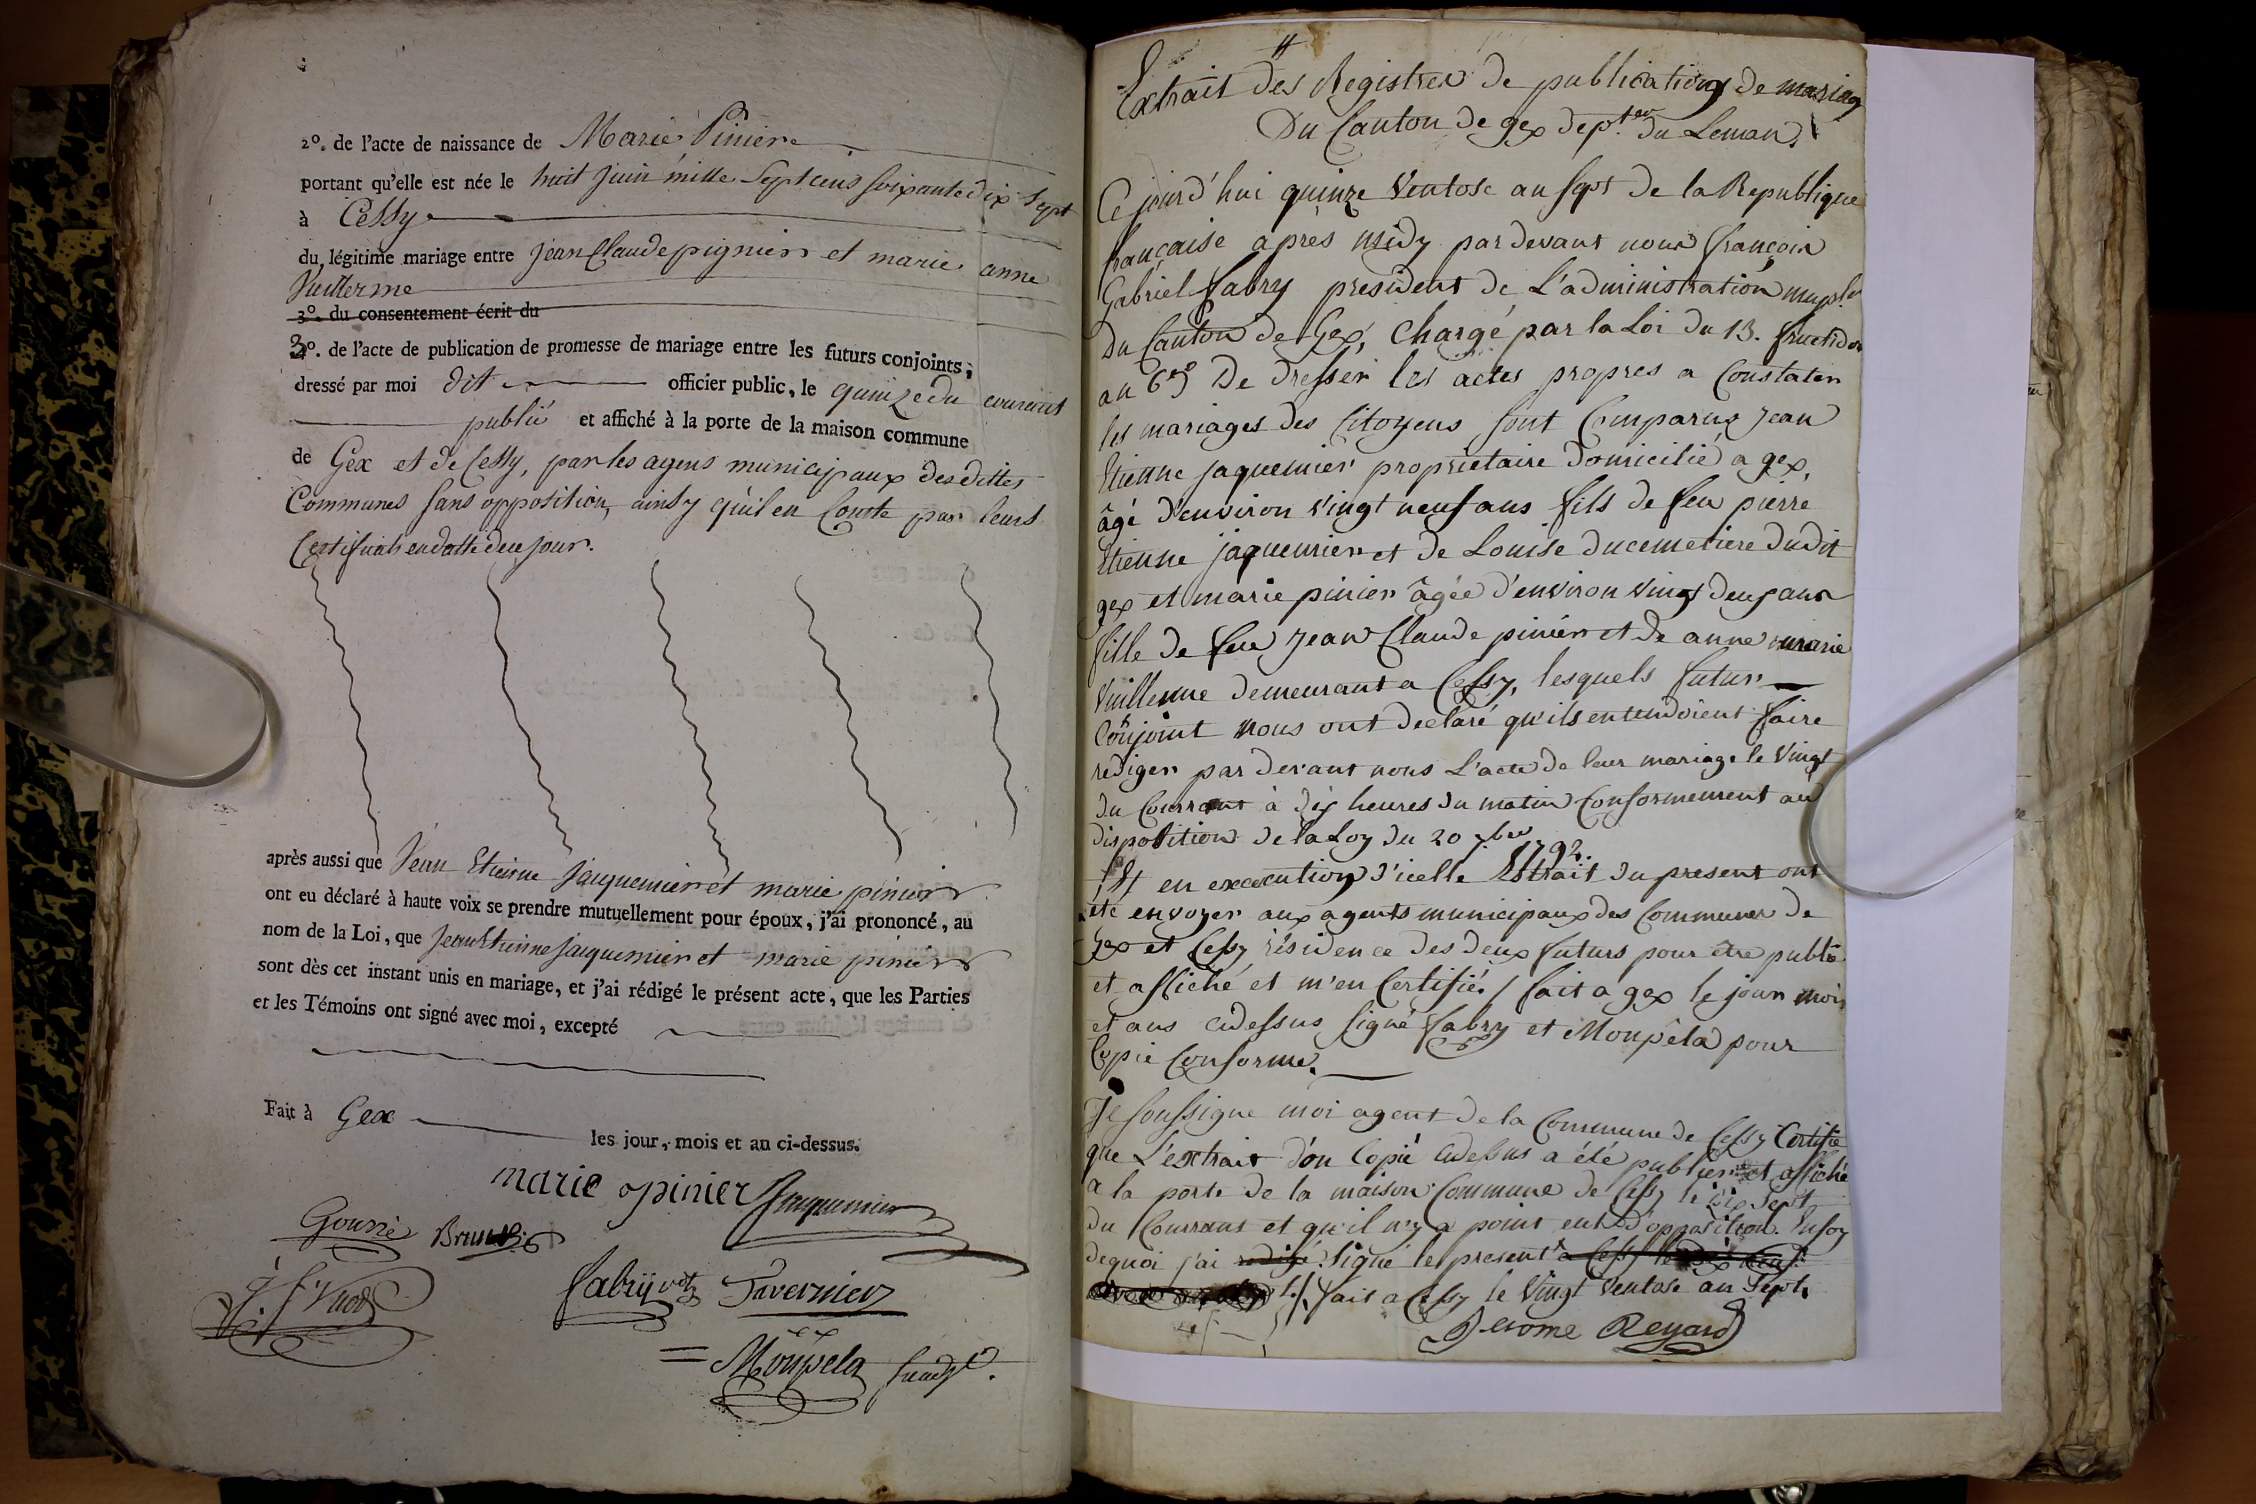 2º. de l'acte de naissance de Marie Pinier
portant qu'elle est née le huit juin mille Septcens soixante dix Sept
à Cessy
du légitime mariage entre jean Claude pignier et marie anne
Vuillerme
3º. du consentement écrit du
3º. de l'acte de publication de promesse de mariage entre les futurs conjoints,
dressé par moi dit officier public, le quinze du courant
publié et affiché à la porte de la maison commune
de Gex et de Cessy, par les agens municipaux des dittes
Communes sans opposition, ainsy qu'il en Conste par leurs
Certificats en datte de ce jour.
après aussi que Jean Etienne Jaquemier et marie pinier
ont eu déclaré à haute voix se prendre mutuellement pour époux, j'ai prononcé, au
nom de la Loi, que Jean Etienne Jaquemier et marie pinier
sont dès cet instant unis en mariage, et j'ai rédigé le présent acte, que les Parties
et les Témoins ont signé avec moi, excepté
Fait à Gex
les jour, mois et an ci-dessus.
marie pinier Jaquemier
Goussé
Fabry Tavernier
Moupela
Extrait des Registres de publications de mariag
Du Canton de gex dept. du Leman.
Ce jourd'hui quinze Ventose an Sept de la Republique
française apres midy par devant nous françois
Gabriel Fabry president de L'administration muple
Du Canton de Gex, Chargé par la Loi du 13. fructidor
an 6e De dresser les actes propres a Constater
les mariages des Citoyens sont Comparus Jean
Etienne jaquemier propriétaire domicilié a gex,
âgé d'environ vingt neuf ans fils de feu pierre
Etienne jaquemier et de Louise ducemetiere dudit
gex et marie pinier âgée d'environ vingt deux ans
fille de feu Jean Claude pinier et de anne marie
Vuillerme demeurant a Cessy, lesquels futur
Conjoint nous ont declaré qu'ils entendoient faire
rediger par devant nous L'acte de leur mariage le Vingt
du Courrant à dix heures du matin Conformement au
disposition de la Loy du 20 7bre 1792.
Et en execcution d'icelle Extrait du present ont
été envoyer aux agents municipaux des Communes de
Gex et Cessy résidence des deux futurs pour être publié
et affiché et m'en Certifié. / fait a gex le jour mois
et ans cidessus signé fabry et Moupela pour
Copie Conforme.
Je soussigne moi agent de la Commune de Cessy Certifie
que L'extrait d'ou Copié cidessus a été publier et affiché
a la porte de la maison Commune de Cessy le dix Sept
du Courrant et qu'il n'y a point eut d'opposition. En foy
dequoi j'ai redigé signé le present a Cessy le
fait a Cessy le Vingt Ventose an Sept.
Jerome Reyard